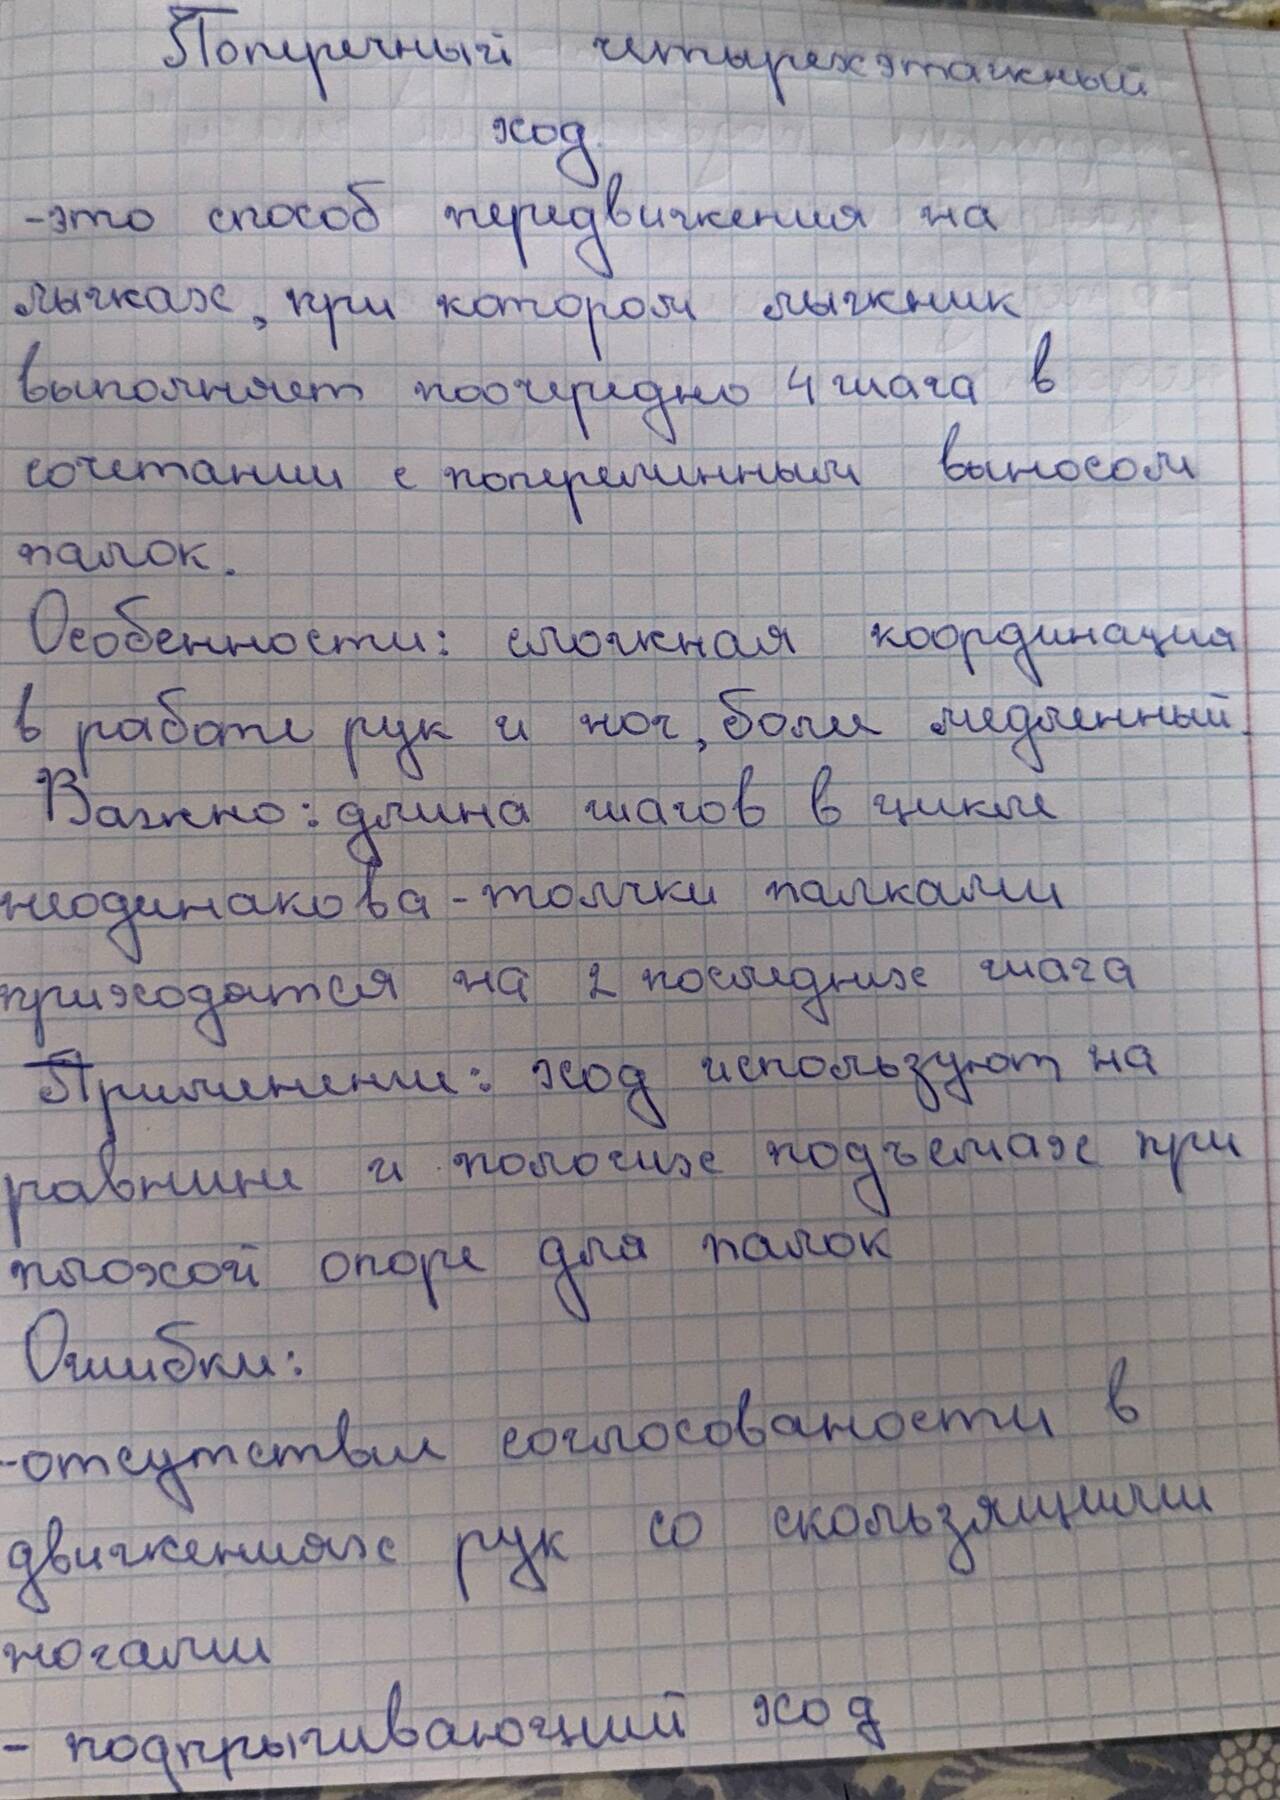 Поперечный четырехэтажный
ход
-это способ передвижения на
лыжах, при котором лыжник
выполняет поочередно 4 шага в
сочетании с попереминным выносом
палок.
Особенности: сложная координация
в работе рук и ног, более медленный.
Важно: длина шагов в цикле
неодинакова - толчки палками
приходятся на 2 последних шага
Применение: ход используют на
равнине и пологих подъемах при
плохой опоре для палок
Ошибки:
-отсутствие соглосованости в
движениях рук со скользящими
ногами
- подпрыгивающий ход